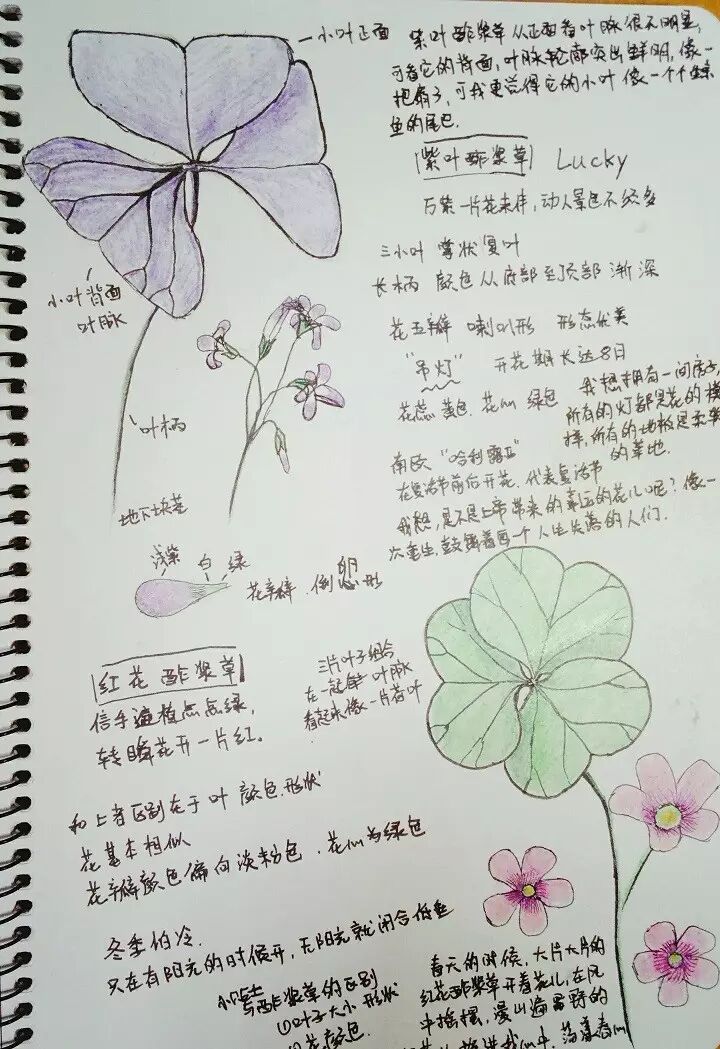 小叶正面
紫叶酢浆草从正面看叶脉很不明显,
可看它的背面,叶脉轮廓突出鲜明,像一
把扇子,可我更觉得它的小叶像一个个鲸
鱼的尾巴.
紫叶酢浆草 Lucky
万紫一片花来伴,动人景色不须多
三小叶 掌状复叶
长柄 颜色从底部至顶部渐深
小叶背面
叶脉
花五瓣 喇叭形 形态优美
"吊灯" 开花期长达8日
花蕊 黄色. 花心 绿色
我想拥有一间房子,
所有的灯都是花的模
样,所有的地板是柔软
的草地.
叶柄
地下块茎
南欧 "哈利露亚"
在复活节前后开花.代表复活节
我想,是不是上帝带来的幸运的花儿呢?像一
次重生,鼓舞着每一个人生失落的人们.
浅紫 白 绿
花瓣 倒卵形
红花酢浆草
信手遍植点点绿,
转瞬花开一片红.
三片叶子组合
在一起 叶脉
看起来像一片荷叶
和上者区别在于叶 颜色.形状
花基本相似
花瓣颜色偏向淡粉色,花心为绿色
冬季怕冷.
只在有阳光的时候开,无阳光就闭合低垂
小贴士
与酢浆草的区别
①叶子大小 形状
花颜色.
春天的时候,大片大片的
红花酢浆草开着花儿,在风
中摇摆,漫山遍野的